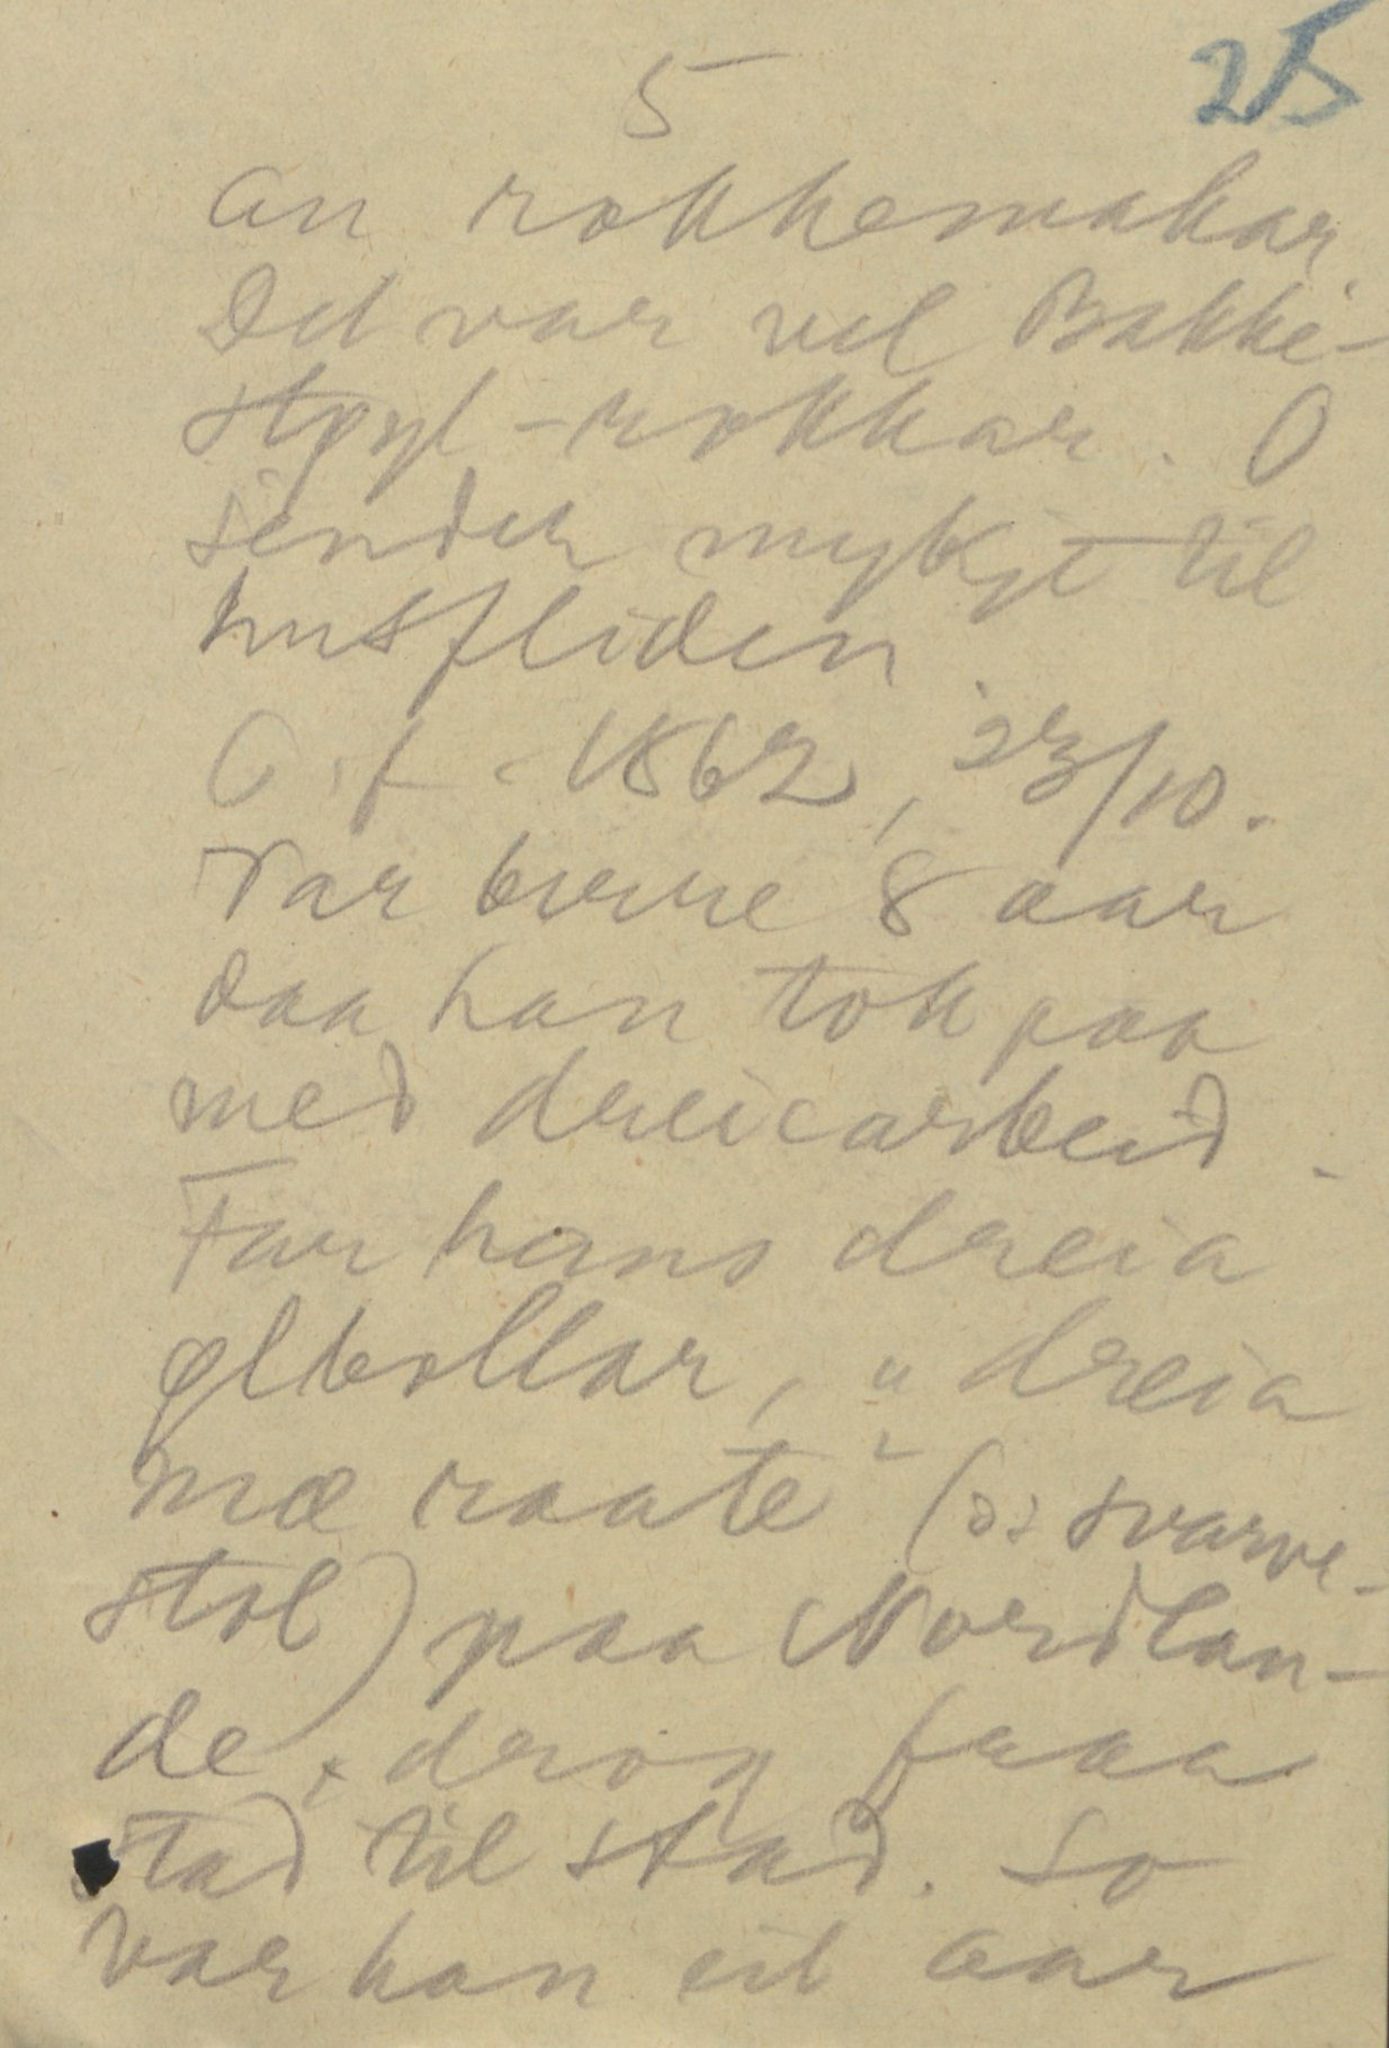 5
25
an rokkemakar.
Det var vel Bakke-
støyl-rokkar. O
sender mykje til
husfliden.
O. f. 1862, 23/10.
Var berre 8 aar
daa han tok paa
med dreiearbeid.
Far hans dreia
ølbollar, "dreia
mæ raate" (ɔ: svarve-
stol) paa Nordlan-
de, drog fraa
stad til stad. So
var han eit aar